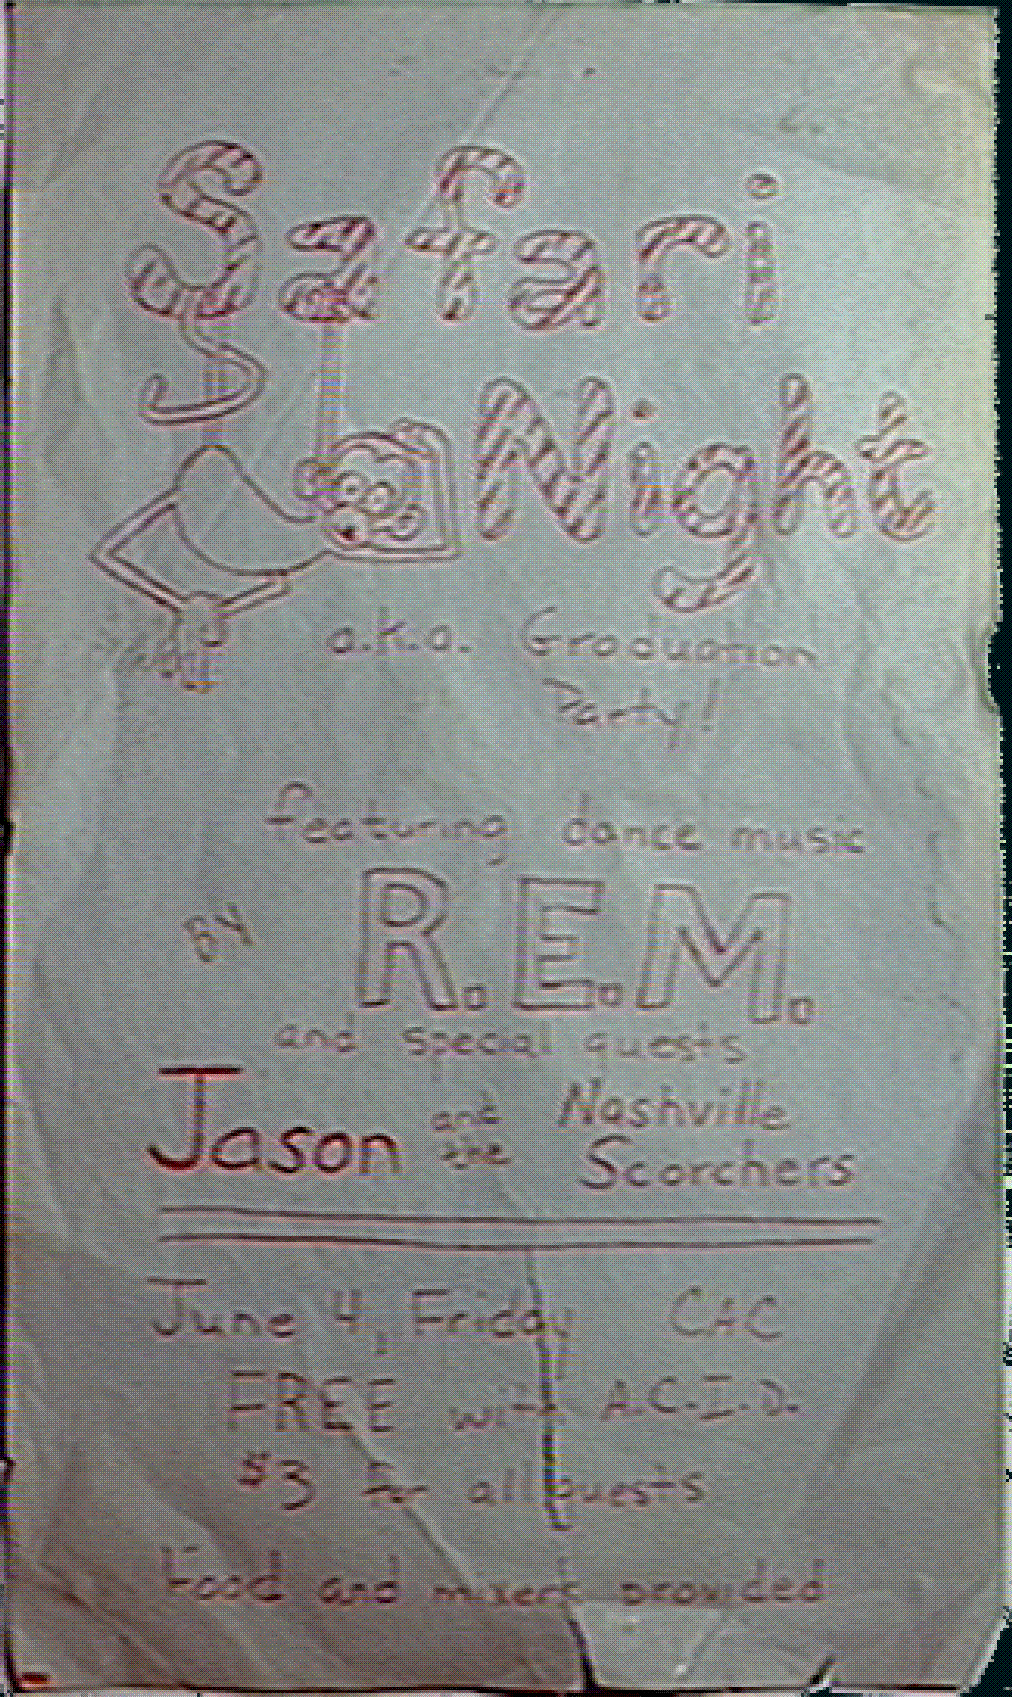 Safari
Night
a.k.a. Graduation
Party!
featuring dance music
BY R.E.M.
and special guests
Jason and the Nashville Scorchers
June 4, Friday CAC
FREE with A.C.I.D.
$3 for all guests
Food and mixers provided